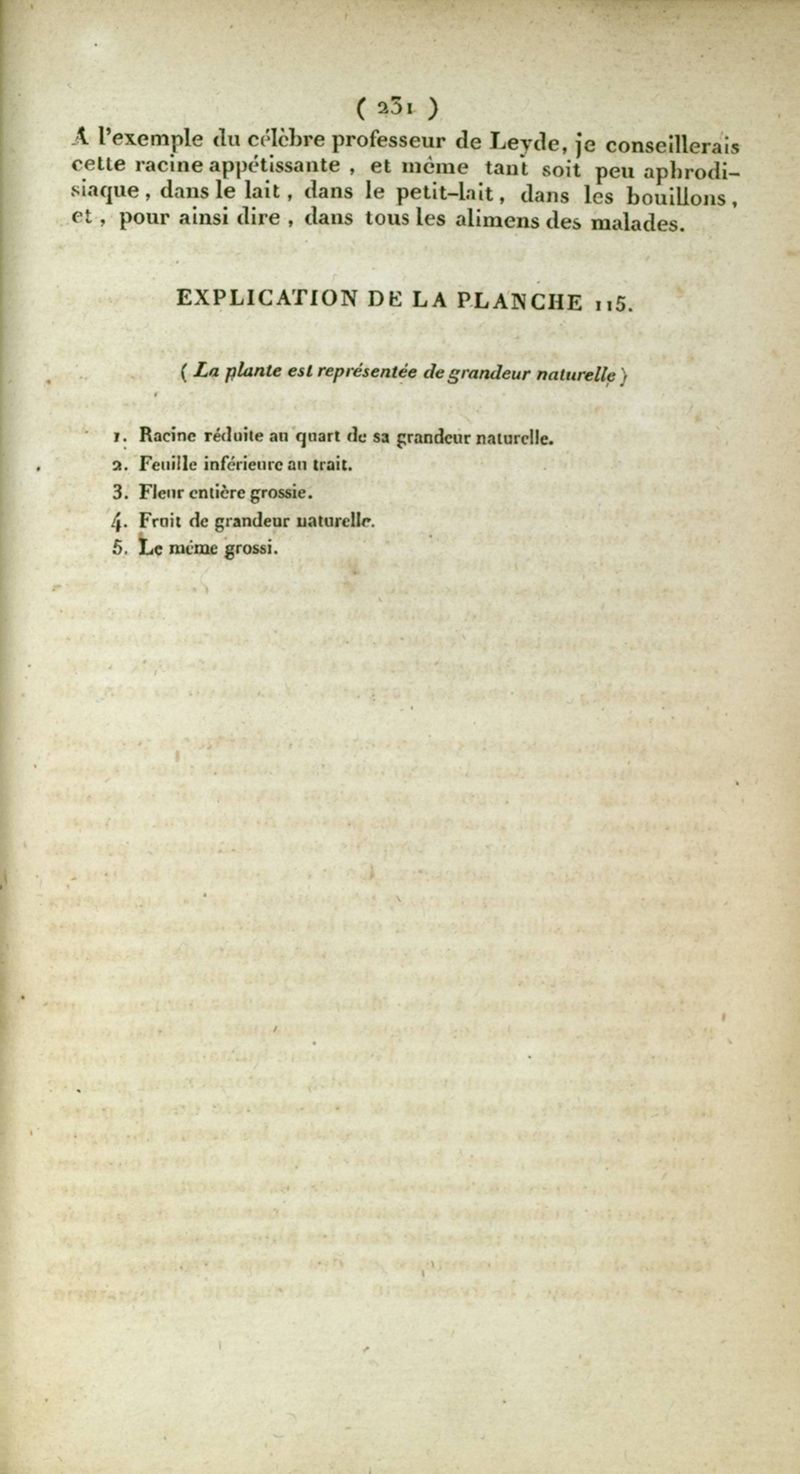 ( 231 )
A l'exemple du célèbre professeur de Leyde, je conseillerais
cette racine appétissante , et même tant soit peu aphrodi-
siaque , dans le lait , dans le petit-lait , dans les bouillons ,
et , pour ainsi dire , dans tous les alimens des malades.
EXPLICATION DE LA PLANCHE 115.
( La plante est représentée de grandeur naturelle )
1. Racine réduite au quart de sa grandeur naturelle.
2. Feuille inférieure au trait.
3. Fleur entière grossie.
4. Fruit de grandeur naturelle.
5. Le même grossi.